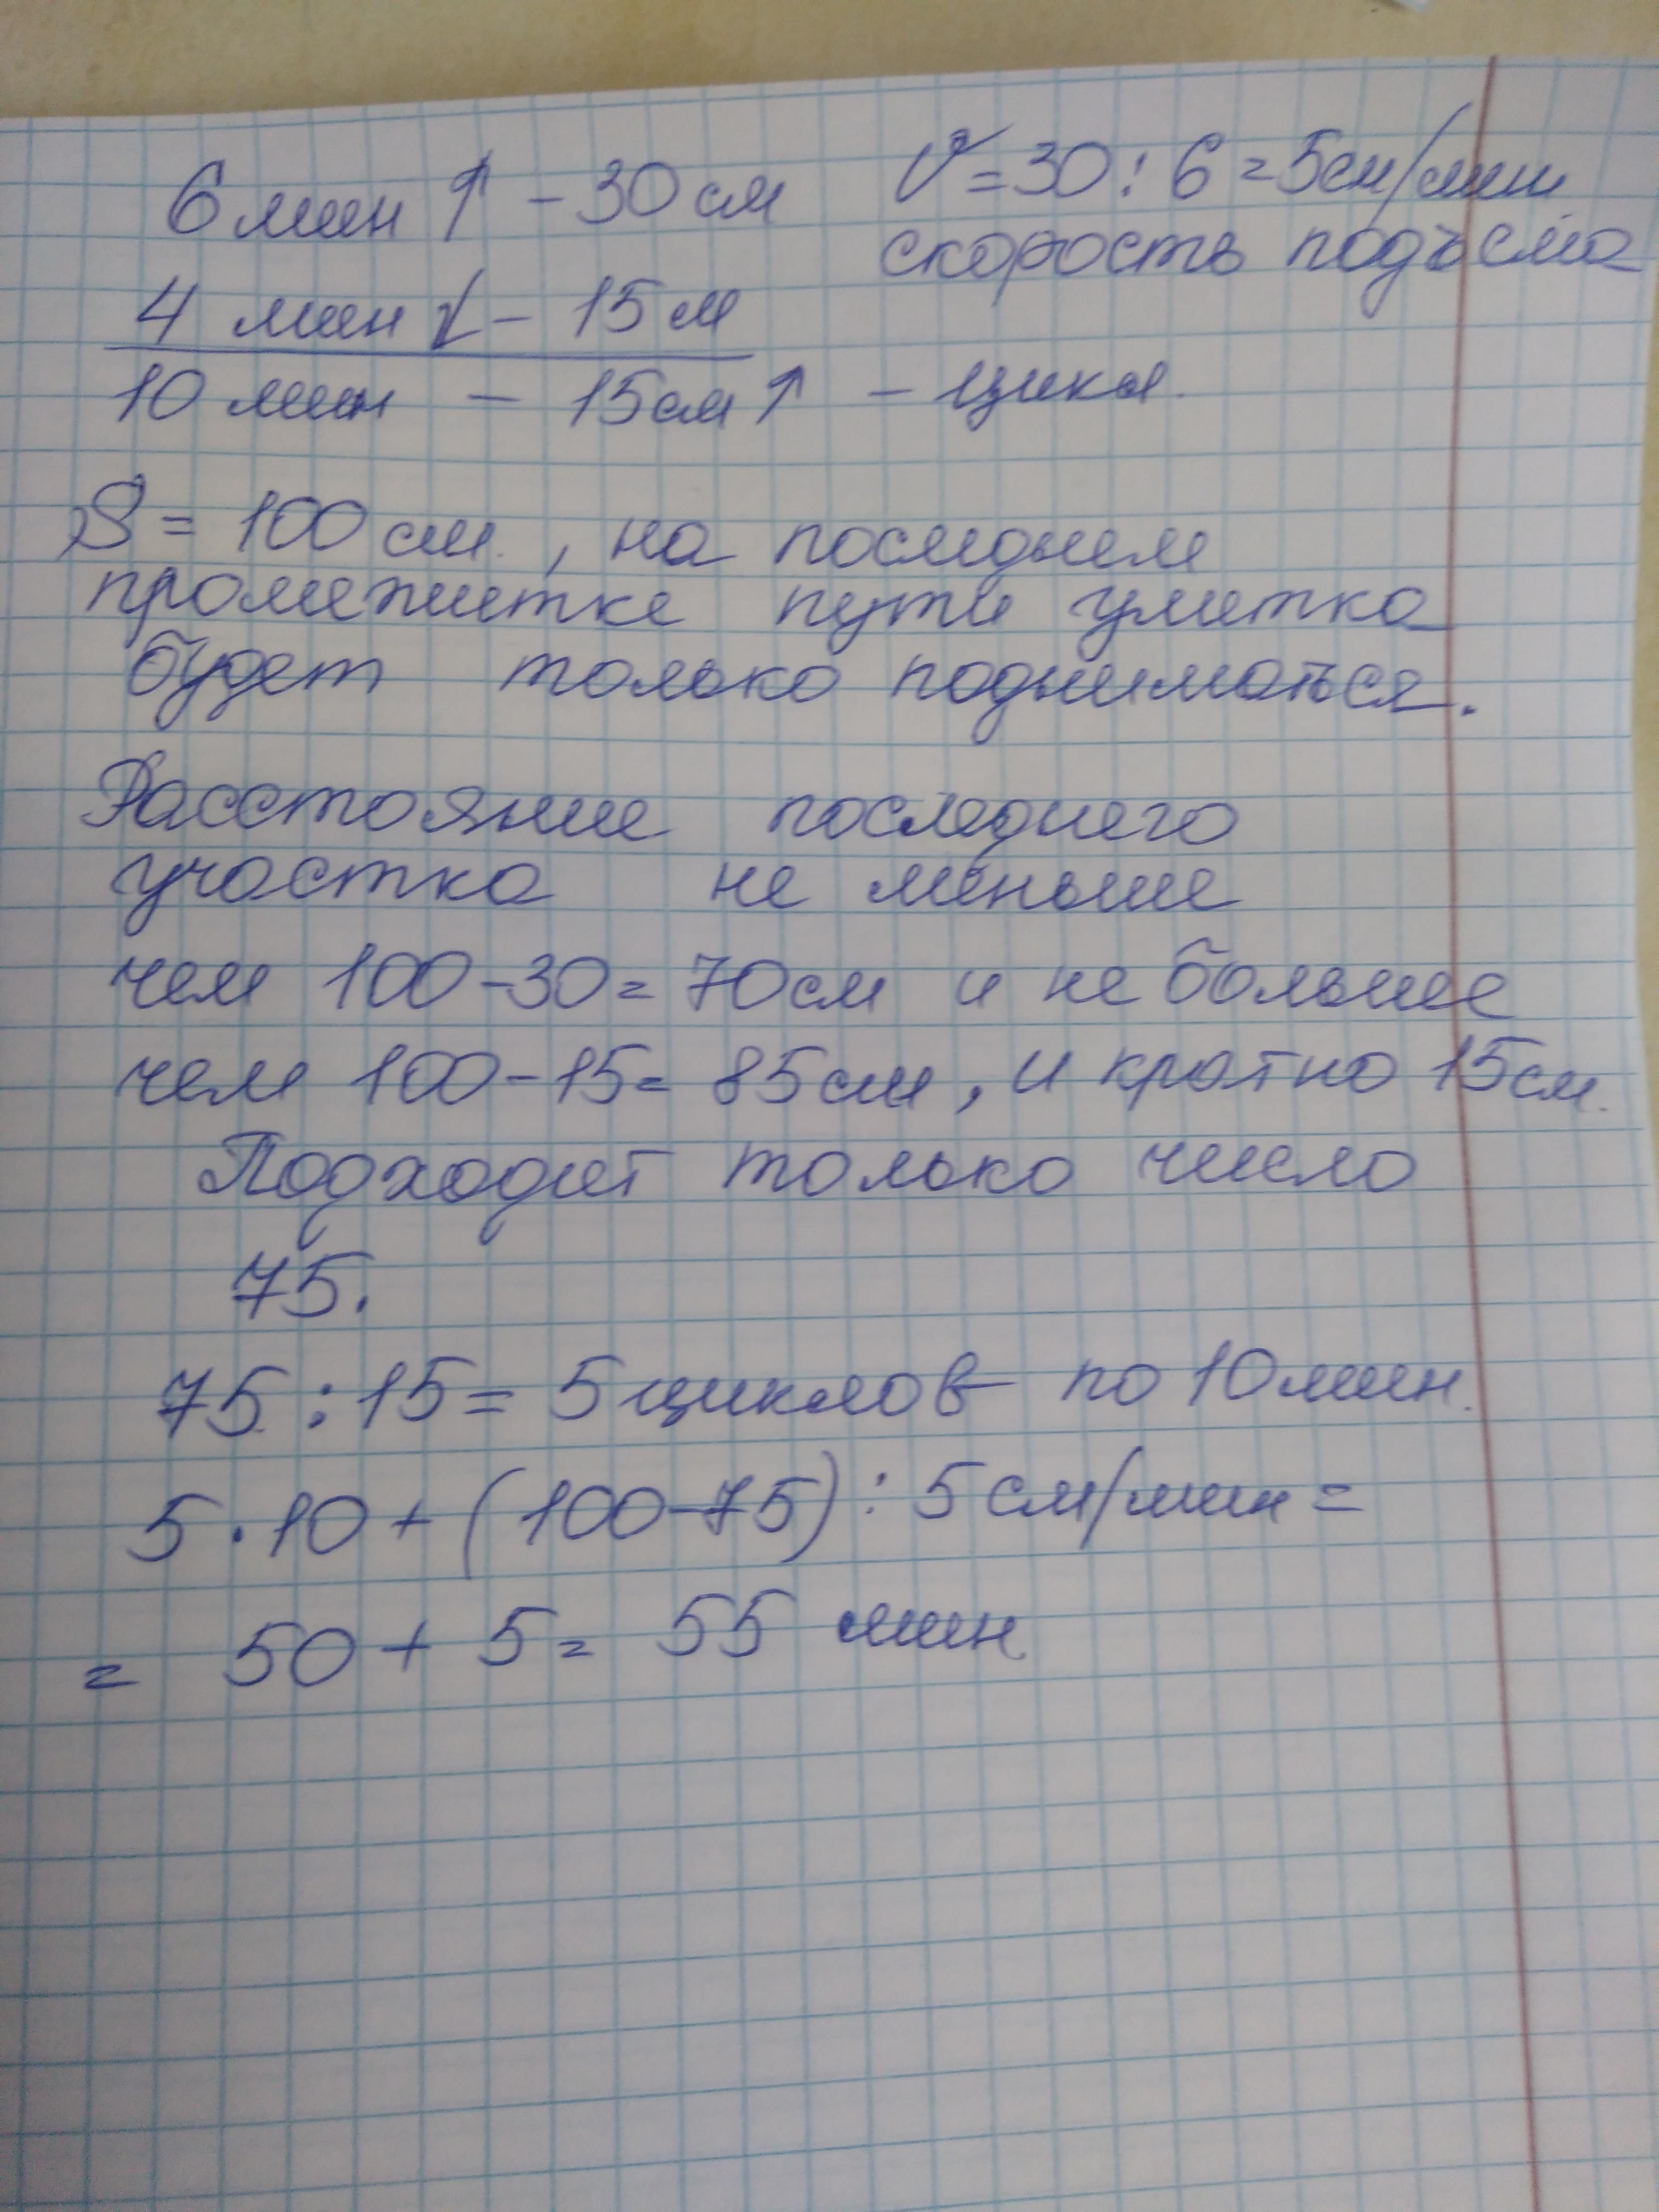 6 мин ↑ - 30 см
V = 30 : 6 = 5 см/мин
скорость подъема
4 мин ↓ - 15 см
10 мин - 15 см ↑ - цикл.
S = 100 см., на последнем
промежутке пути улитка
будет только подниматься.
Расстояние последнего
участка не меньше
чем 100 - 30 = 70 см и не больше
чем 100 - 15 = 85 см, и кратно 15 см.
Подходит только число
75.
75 : 15 = 5 циклов по 10 мин.
5 · 10 + (100 - 75) : 5 см/мин =
= 50 + 5 = 55 мин.